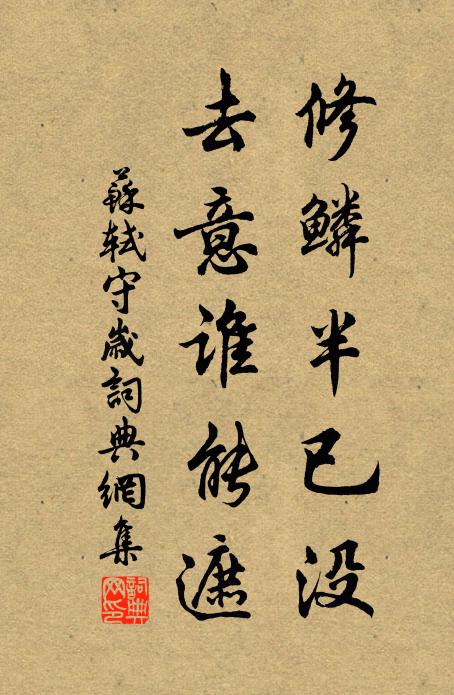 修鱗半已没
去意誰能遮
蘇軾守歲詞典網集
詞典網印